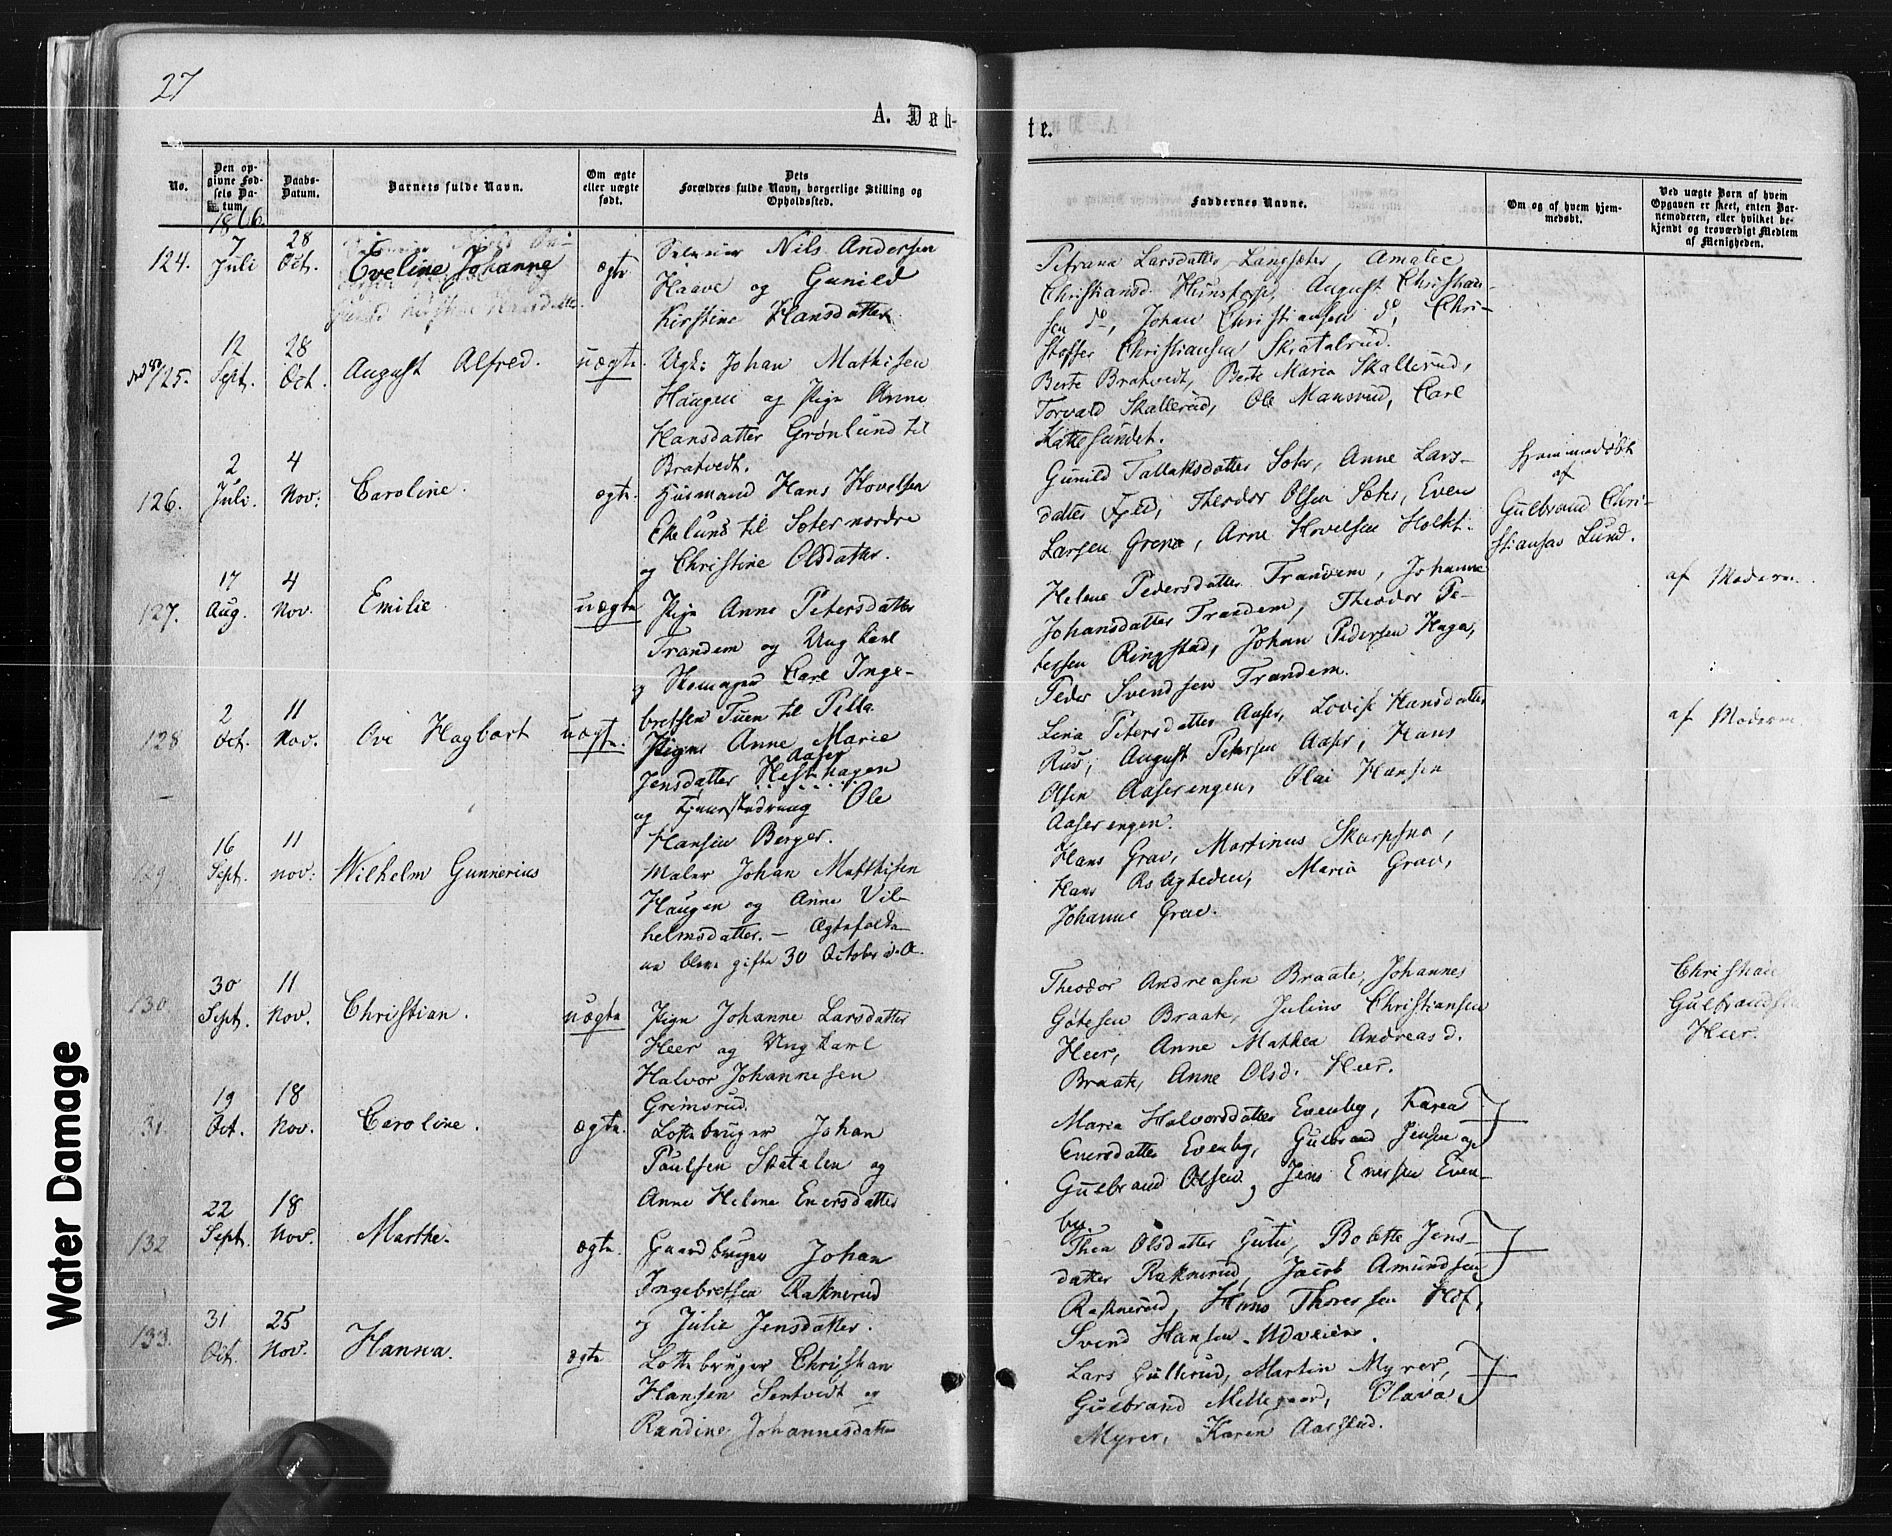 27
A. Døb-
te.
No.
Den op-
givne Fød-
sels Da-
tum.
1866.
Daabs-
Datum.
Barnets fulde Navn.
Om ægte
eller uægte
født.
Dets
Forældres fulde Navn, borgerlige Stilling og
Opholdssted.
Faddernes Navne.
Om og af hvem hjem-
medøbt.
Ved uægte Børn af hvem
Opgaven er skeet, enten Bar-
nemoderen, eller hvilket be-
kjendt og troværdigt Medlem
af Menigheden.
124.
7
Juli
28
Oct.
Eveline Johanne
ægte
Nils Andersen
Haave og Gunild
Kirstine Hansdatter
Petrana Larsdatter Langsæter, Amalie
Christiansd. August Christian-
sen do, Johan Christiansen do, Chri-
stoffer Christiansen Skratalrud.
125.
12
Sept.
28
Oct.
August Alfred.
uægte.
Ugk: Johan Mathisen
Haugen og Pige Anne
Hansdatter Grønlund til
Bratvedt.
Berte Bratvedt, Berte Maria Skallerud,
Torvald Skallerud, Ole Mansrud, Carl
Kattesundet.
126.
2
Juli.
4
Nov.
Caroline.
ægte.
Husmand Hans Hovelsen
Ekelund til Soter nordre
og Christine Olsdatter.
Gunild Tallaksdatter Soter, Anne Lars-
datter Fjeld, Theodor Olsen Sæter, Even
Larsen Grena, Arne Hovelsen Holkt.
Hjemmedøbt
af
Gulbrand Chri-
stiansen Lund.
127.
17
Aug.
4
Nov.
Emilie.
uægte
Pige Anne Petersdatter
Trandem og Ungkarl
og Skomager Carl Inge-
bretsen Tuen til
Helene Pedersdatter Trandem, Johanne
Johansdatter Trandem, Theodor Pe-
tersen Ringstad, Johan Pedersen Haga,
Peder Svendsen Trandem.
af Moderen.
128
2
Oct.
11
Nov.
Ove Hagbart
uægte.
Pigen Anne Marie
Aaser
Jensdatter Hesthagen
og Ole
Hansen Berger.
Lina Petersdatter Aaser, Lovise Hansdatter
Rud, August Petersen Aaser, Hans
Olsen Aaserengen, Olai Hansen
Aaserengen.
af Moderen
129
16
Sept.
11
Nov.
Wilhelm Gunnerius
Maler Johan Matthisen
Haugen og Anne Vil-
helmsdatter. – Ægtefolke-
ne bleve gifte 30 October d. A.
Hans Grav, Martinus Skarpsno,
Hans Roligheden, Maria Grav,
Johanne Grav.
130
30
Sept.
11
Nov.
Christian.
uægte
Pige Johanne Larsdatter
Heer og Ungkarl
Halvor Johannesen
Grimsrud.
Theodor Andreasen Braate, Johannes
Gotesen Braate, Julius Christiansen
Heer, Anne Mathea Andreasd.
Braate, Anne Olsd. Heer.
Christian
Gulbrandsen
Heer.
31.
19
Oct.
18
Nov.
Caroline.
ægte.
Lottebruger Johan
Paulsen Skatalen og
Anne Helene Enersdatter
Maria Halvorsdatter Evenby, Karen
Enersdatter Evenby, Gulbrand Jensen og
Gulbrand Olsen, Jens Enersen Even-
by.
132
22
Sept.
18
Nov.
Marthe.
ægte.
Gaardbruger Johan
Ingebretsen Raknerud
og Julie Jensdatter.
Thea Olsdatter Gutu, Bolette Jens-
datter Raknerud, Jacob Amundsen
Raknerud, Hans Thoresen Hof,
Svend Hansen
133.
31
Oct.
25
Nov.
Hanna.
ægte
Lottebruger Christian
Hansen Sentvedt og
Randine Johannesdatter
Lars Gullerud, Martin Myrer,
Gulbrand Mellegaard, Olava
Myrer, Karen Aarstad.
Water Damage